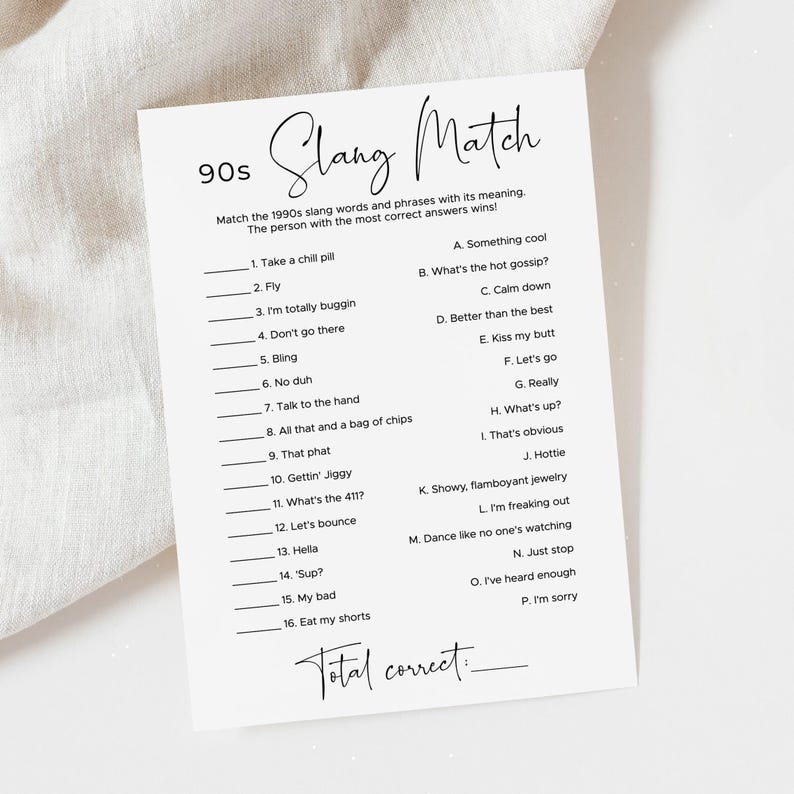 90s Slang Match
Match the 1990s slang words and phrases with its meaning.
The person with the most correct answers wins!
______ 1. Take a chill pill
______ 2. Fly
______ 3. I'm totally buggin
______ 4. Don't go there
______ 5. Bling
______ 6. No duh
______ 7. Talk to the hand
______ 8. All that and a bag of chips
______ 9. That phat
______ 10. Gettin' Jiggy
______ 11. What's the 411?
______ 12. Let's bounce
______ 13. Hella
______ 14. 'Sup?
______ 15. My bad
______ 16. Eat my shorts
A. Something cool
B. What's the hot gossip?
C. Calm down
D. Better than the best
E. Kiss my butt
F. Let's go
G. Really
H. What's up?
I. That's obvious
J. Hottie
K. Showy, flamboyant jewelry
L. I'm freaking out
M. Dance like no one's watching
N. Just stop
O. I've heard enough
P. I'm sorry
Total correct:______